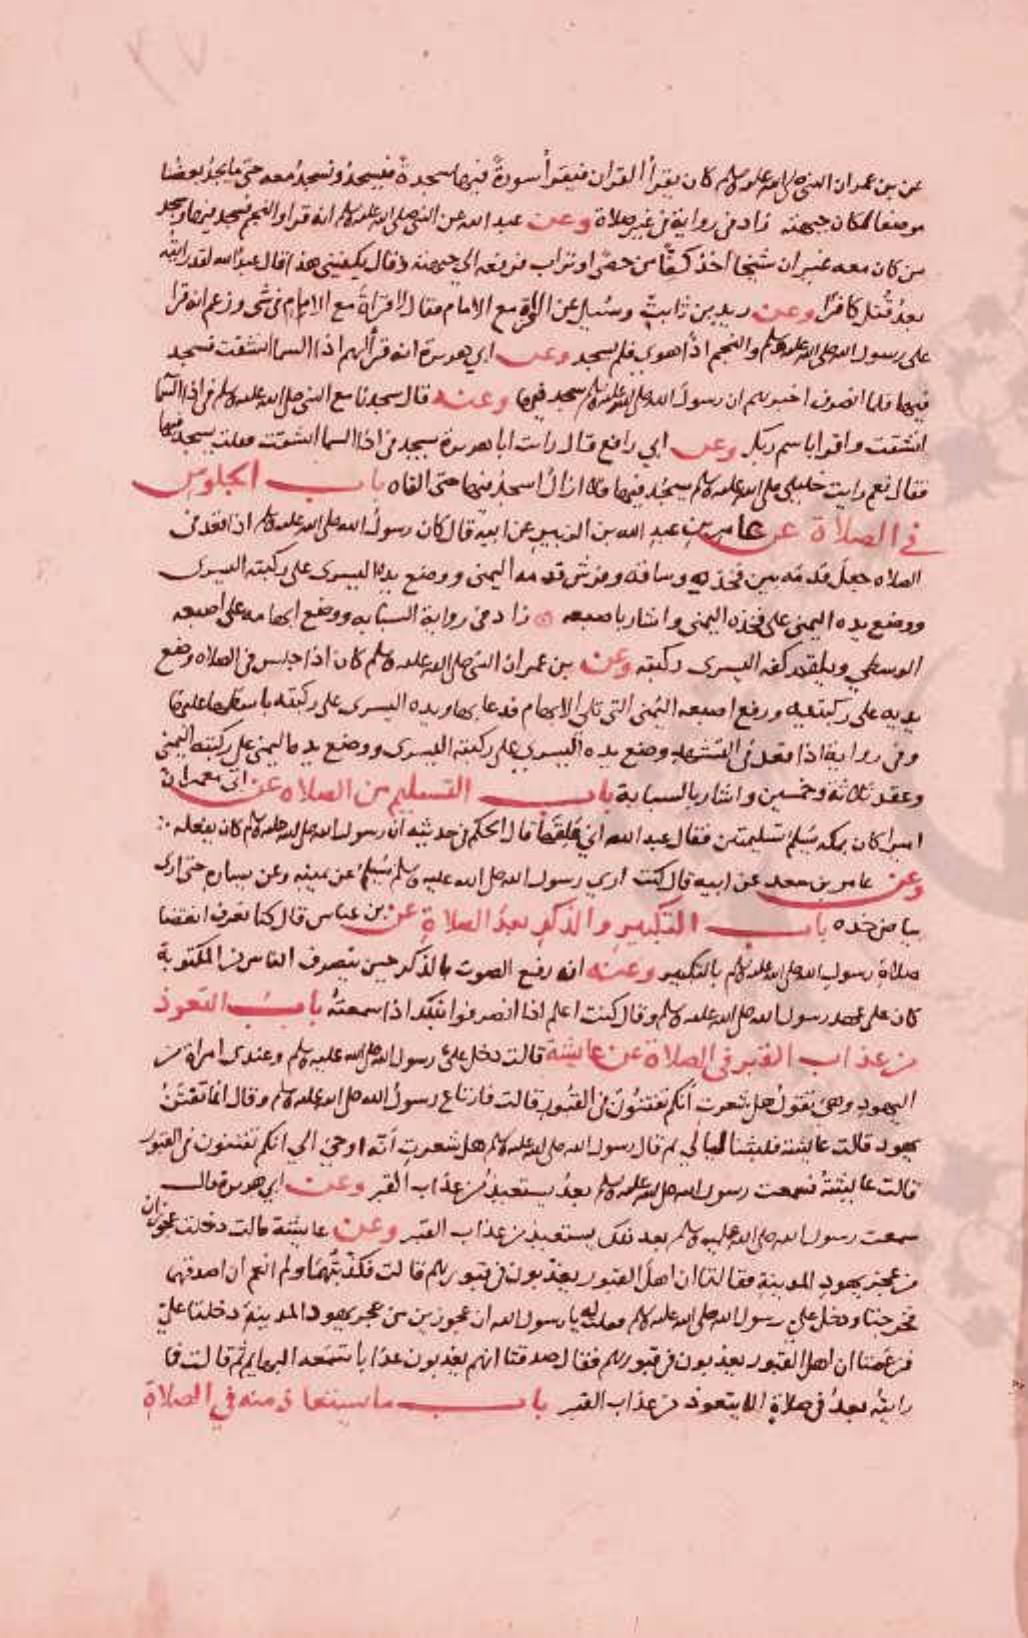 عن بن عمر ان النبى صلى الله عليه وسلم كان يقرأ القران فيقرأ سورةً فيها سجدة فيسجدُ ونسجدُ معه حتى ما يجدُ بعضُنا
موضعا لمكان جبهته زاد فى رواية فى غير صلاة وعن عبد الله عن النبى صلى الله عليه وسلم انه قرا والنجم فسجد فيها وسجد
من كان معه غير ان شيخا اخذ كفًّا من حصًى او تراب فرفعه الى جبهته وقال يكفينى هذا قال عبد الله لقد رايته
بعدُ قُتل كافرًا وعن زيد بن ثابتٍ وسُئل عن القراة مع الامام فقال لا قراة مع الامام فى شى وزعم انه قرا
على رسول الله صلى الله عليه وسلم والنجم اذا هوى فلم يسجد وعن ابي هريرة انه قرأ لهم اذا السما انشقت فسجد
فيها فلما انصرف اخبرهم ان رسول الله صلى الله عليه وسلم سجد فيها وعنه قال سجدنا مع النبى صلى الله عليه وسلم فى اذا السما
انشقت واقرا باسم ربك وعن ابي رافع قال رايت ابا هريرة يسجد فى اذا السما انشقت فقلت تسجد فيها
فقال نعم رايت خليلي صلى الله عليه وسلم يسجُد فيها فلا ازالُ اسجدُ فيها حتى القاه باب الجلوس
في الصلاة عن عامر بن عبد الله بن الزبير عن ابيه قال كان رسولُ الله صلى الله عليه وسلم اذا قعد فى
الصلاه جعل قدمَه بين فخذه وساقه وفرش قدمه اليمنى ووضع يده اليسرى على ركبته اليسرى
ووضع يده اليمنى على فخذه اليمنى واشار باصبعه زاد فى رواية السبابه ووضع ابهامه على اصبعه
الوسطي ويلقم كفه اليسرى ركبته وعن بن عمر ان النبى صلى الله عليه وسلم كان اذا جلس فى الصلاه وضع
يديه على ركبتيه ورفع اصبعه اليُمنى التى تلى الابهام فدعا بها ويده اليسرى على ركبته باسطها عليها
وفى رواية اذا قعد فى التشهد وضع يده اليسرى على ركبته اليسرى ووضع يده اليمنى على ركبته اليمنى
وعقد ثلاثة وخمسين واشار بالسبابة باب التسليم من الصلاه عن ابى معمر ان
اميرا كان بمكه يسَلمُ تسليمتين فقال عبد الله انى عَلِقَها قال الحكم فى حديثه ان رسول الله صلى الله عليه وسلم كان يفعله
وعن عامر بن سعد عن ابيه قال كنت ارى رسول الله صلى الله عليه وسلم يُسَلمُ عن يمينه وعن يساره حتى ارى
بياض خده باب التكبير والذكر بعدَ الصلاة عن بن عباس قال كنا نعرف انقضا
صلاةِ رسول الله صلى الله عليه وسلم بالتكبير وعنه ان رفع الصوت بالذكر حين ينصرف الناس من المكتوبة
كان على عهد رسول الله صلى الله عليه وسلم وقال كنت اعلم اذا انصرفوا بذلك اذا سمعتهُ باب التعوذ
من عذاب القبر فى الصلاة عن عايشة قالت دخل علىّ رسول الله صلى الله عليه وسلم وعندى امراة من
اليهود وهى تقولُ هل شعرت انكم تفتنُون فى القُبور قالت فارتاع رسولُ الله صلى الله عليه وسلم وقال انما تفتَنُ
يهود قالت عايشة فلبثنا ليالى ثم قال رسول الله صلى الله عليه وسلم هل شعرتِ انّه اوحى الى انكم تفتنون فى القبور
قالت عايشةُ فسمعت رسول الله صلى الله عليه وسلم بعدُ يستعيذُ من عذاب القبر وعن ابى هريرة قال
سمعت رسول الله صلى الله عليه وسلم بعد ذلك يستعيذ من عذاب القبر وعن عايشة قالت دخلت عجوزان
من عجز يهود المدينة فقالتا ان اهل القبور يعذبون فى قبورهم قالت فكذّبتُهُما ولم انعم ان اصدقهما
فخرجتا ودخل على رسول الله صلى الله عليه وسلم فقلت له يا رسول الله ان عجوزين من عجز يهود المدينة دخلتا علىّ
فزعمتا ان اهل القبور يعذبون فى قبورهم فقال صدقتا انهم يعذبون عذابا تسمعه البهايم ثم قالت فما
رايته بعدُ فى صلاةٍ الا يتعوذ من عذاب القبر باب ما يستعاذ منه في الصلاة